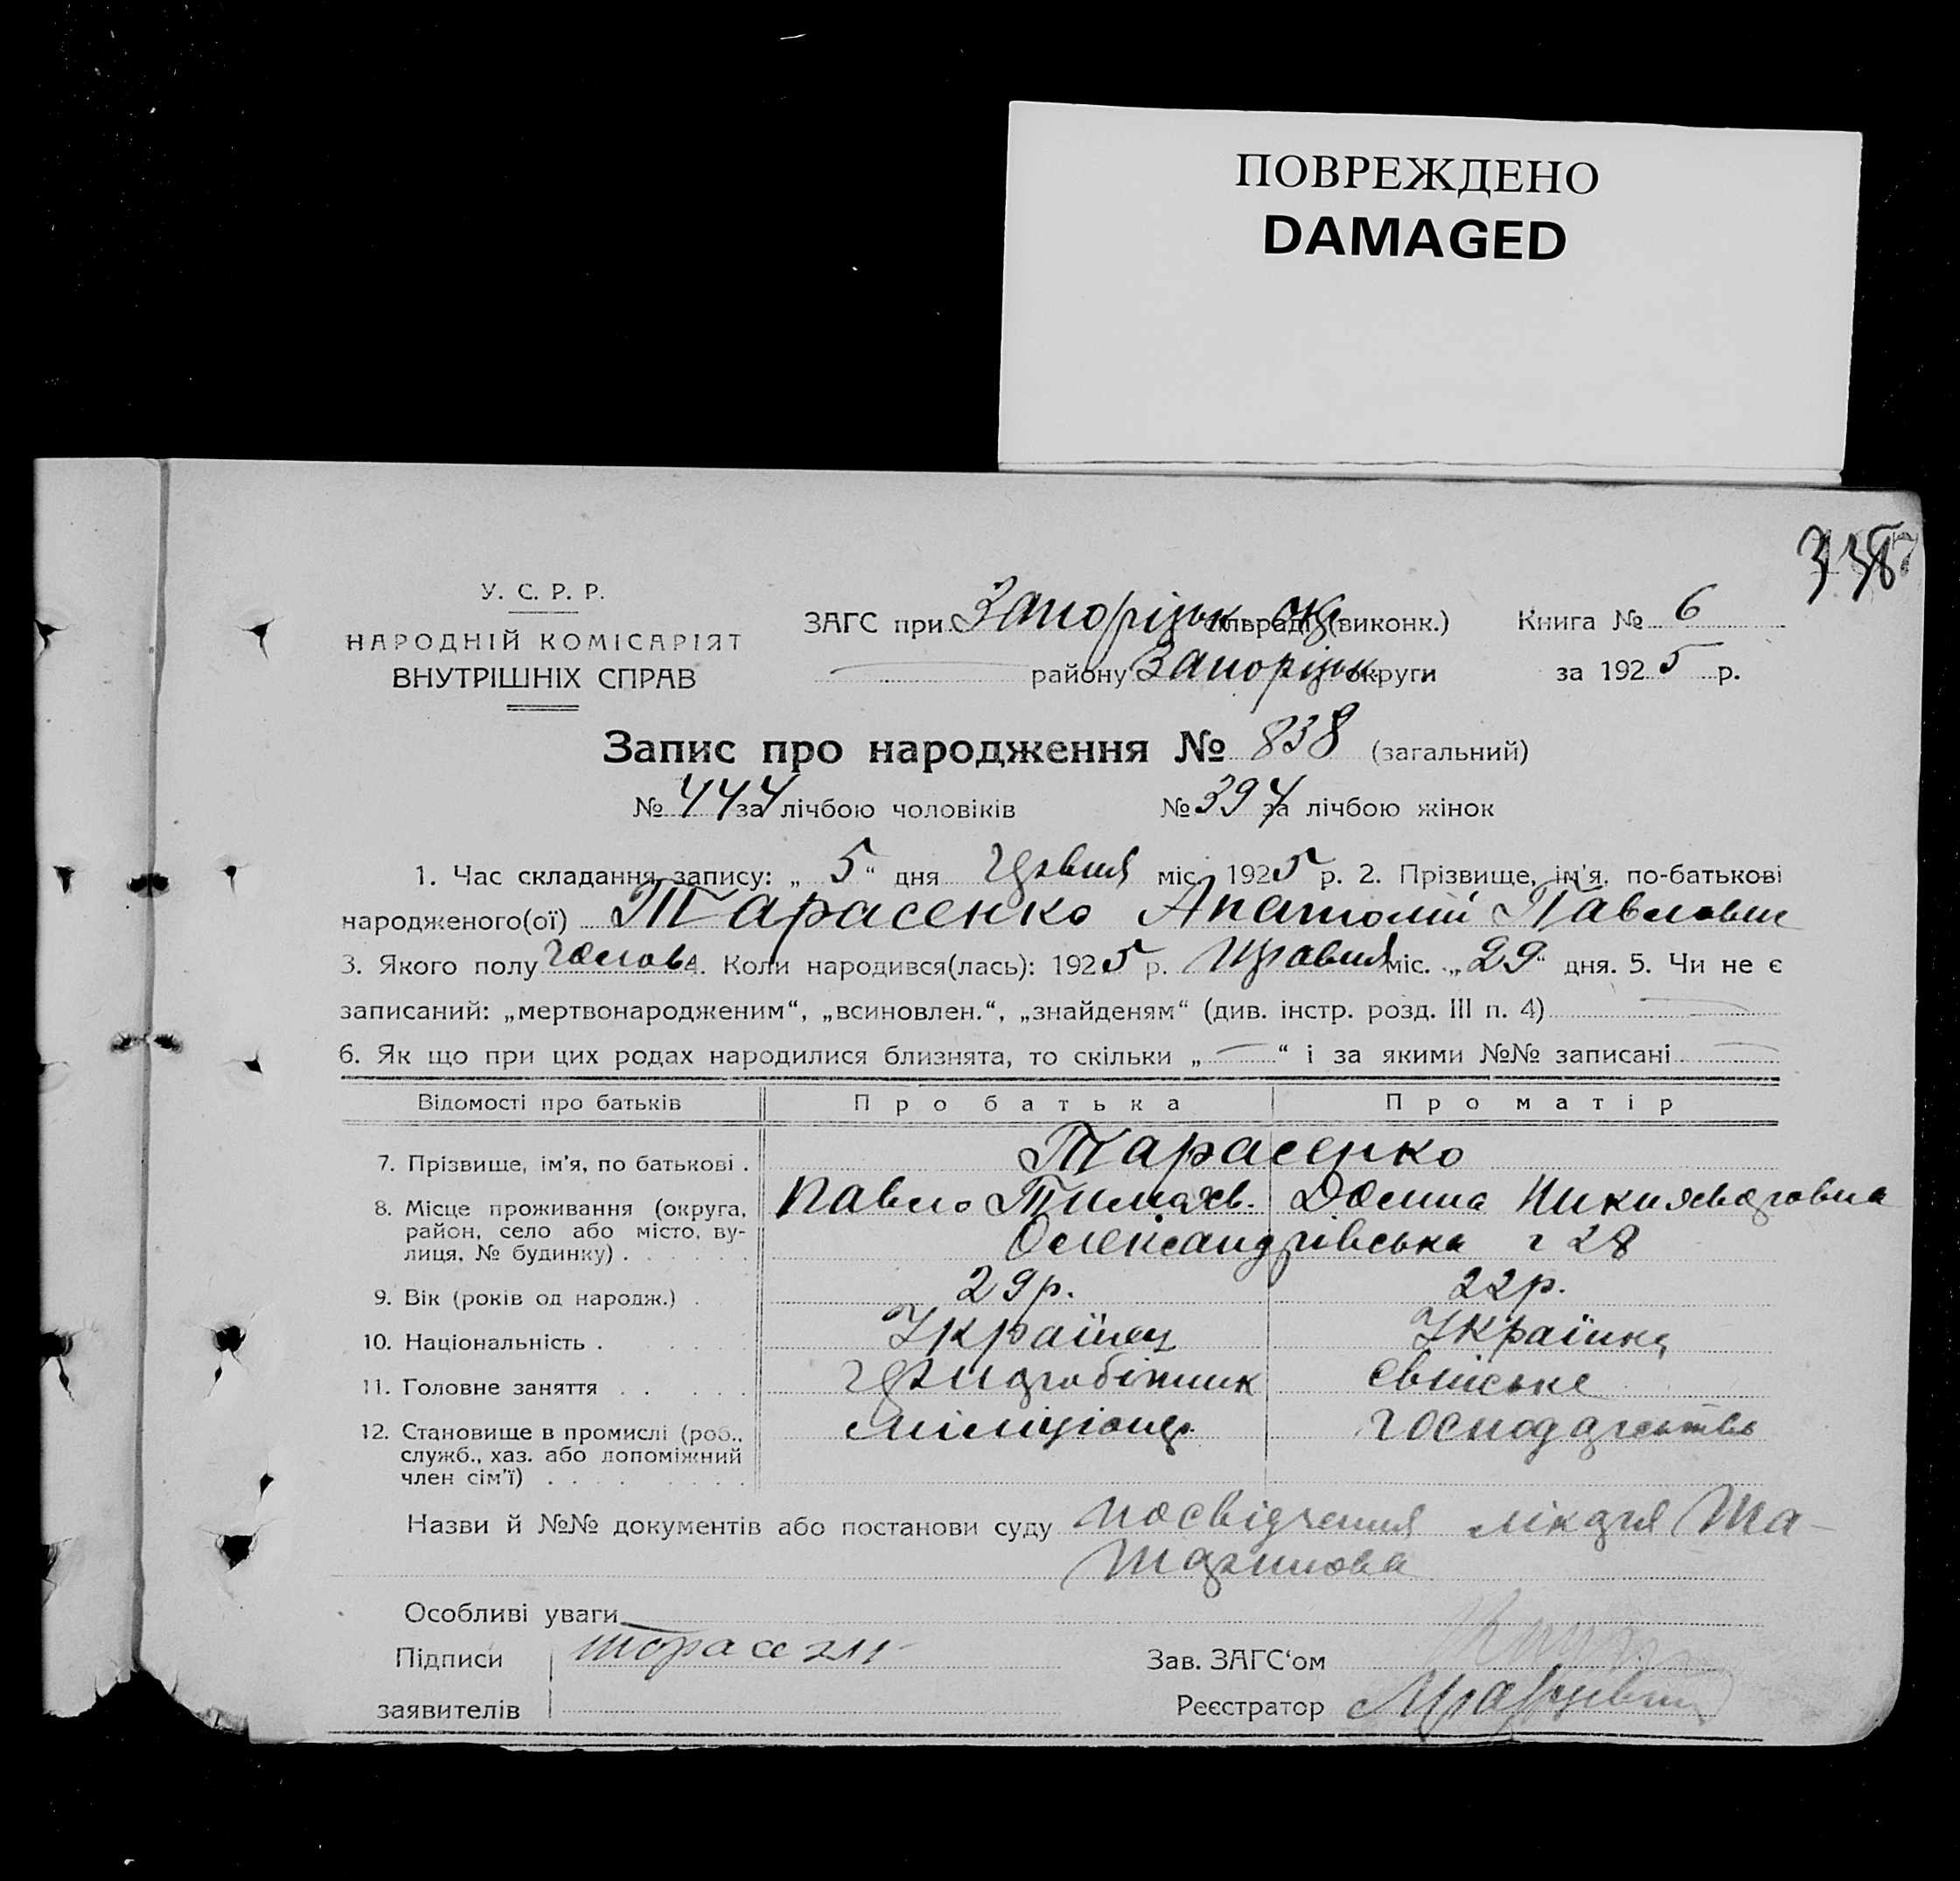 ПОВРЕЖДЕНО
DAMAGED
У. С. Р. Р.
НАРОДНІЙ КОМІСАРІЯТ
ВНУТРІШНІХ СПРАВ
ЗАГС при Запорізьк. (виконк.) Книга № 6
району Запорізьк. округи за 1925 р.
Запис про народження № 838 (загальний)
№ 444 за лічбою чоловіків № 394 за лічбою жінок
1. Час складання запису: „ 5 “ дня червня міс. 1925 р. 2. Прізвище, ім'я, по-батькові
народженого(ої) Тарасенко Анатолій Павлович
3. Якого полу чолов. 4. Коли народився(лась): 1925 р. травня міс. „ 29 “ дня. 5. Чи не є
записаний: „мертвонародженим“, „всиновлен.“, „знайденям“ (див. інстр. розд. III п. 4)
6. Як що при цих родах народилися близнята, то скільки „ — “ і за якими №№ записані —
Відомості про батьків Про батька Про матір
7. Прізвище, ім'я, по батькові . Тарасенко
8. Місце проживання (округа, район, село або місто, вулиця, № будинку) . Павло Тимохв. Домна
Олександрівська 28
9. Вік (років од народж.) . 29 р. 22 р.
10. Національність . Українец Українка
11. Головне заняття . . . . чорноробітник свійське
12. Становище в промислі (роб., служб., хаз. або допоміжний член сім'ї) . . . . міліціонер. господарство
Назви й №№ документів або постанови суду посвідчення лікаря Та-
таринова
Особливі уваги
Підписи
заявителів
Зав. ЗАГС‘ом
Реєстратор